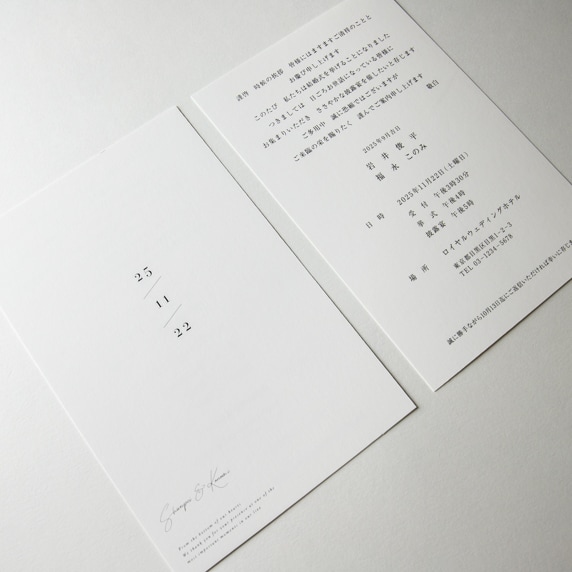 25
11
22
Shunpei & Konomi
From the bottom of our hearts
We thank you for your presence at one of the
most important moments in our life
謹啓　時候の挨拶　皆様にはますますご清祥のことと
お慶び申し上げます
このたび　私たちは結婚式を挙げることになりました
つきましては　日ごろお世話になっている皆様に
お集まりいただき　ささやかな披露宴を催したいと存じます
ご多用中　誠に恐縮ではございますが
ご来臨の栄を賜りたく　謹んでご案内申し上げます
敬白
2025年9月吉日
岩井 俊平
福永 このみ
日時　2025年11月22日（土曜日）
受付　午後3時30分
挙式　午後4時
披露宴　午後5時
場所　ロイヤルウェディングホテル
東京都目黒区目黒1-2-3
TEL 03-1234-5678
誠に勝手ながら10月13日迄にご返信いただければ幸いに存じ